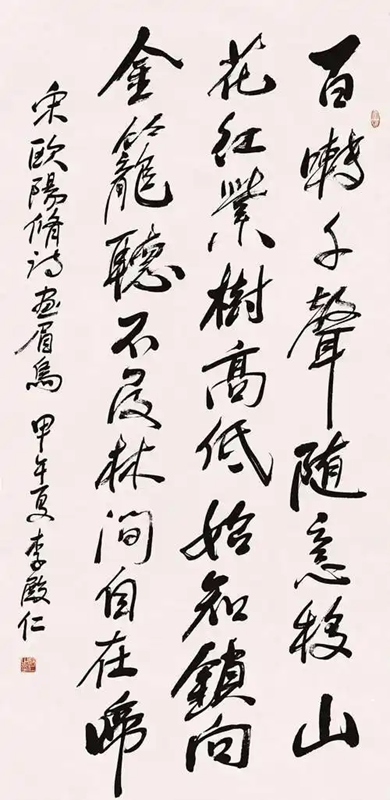 百囀千聲随意移山
花紅紫樹高低始知鎖向
金籠聽不及林間自在啼
宋歐陽脩詩畫眉鳥 甲午夏 李殿仁